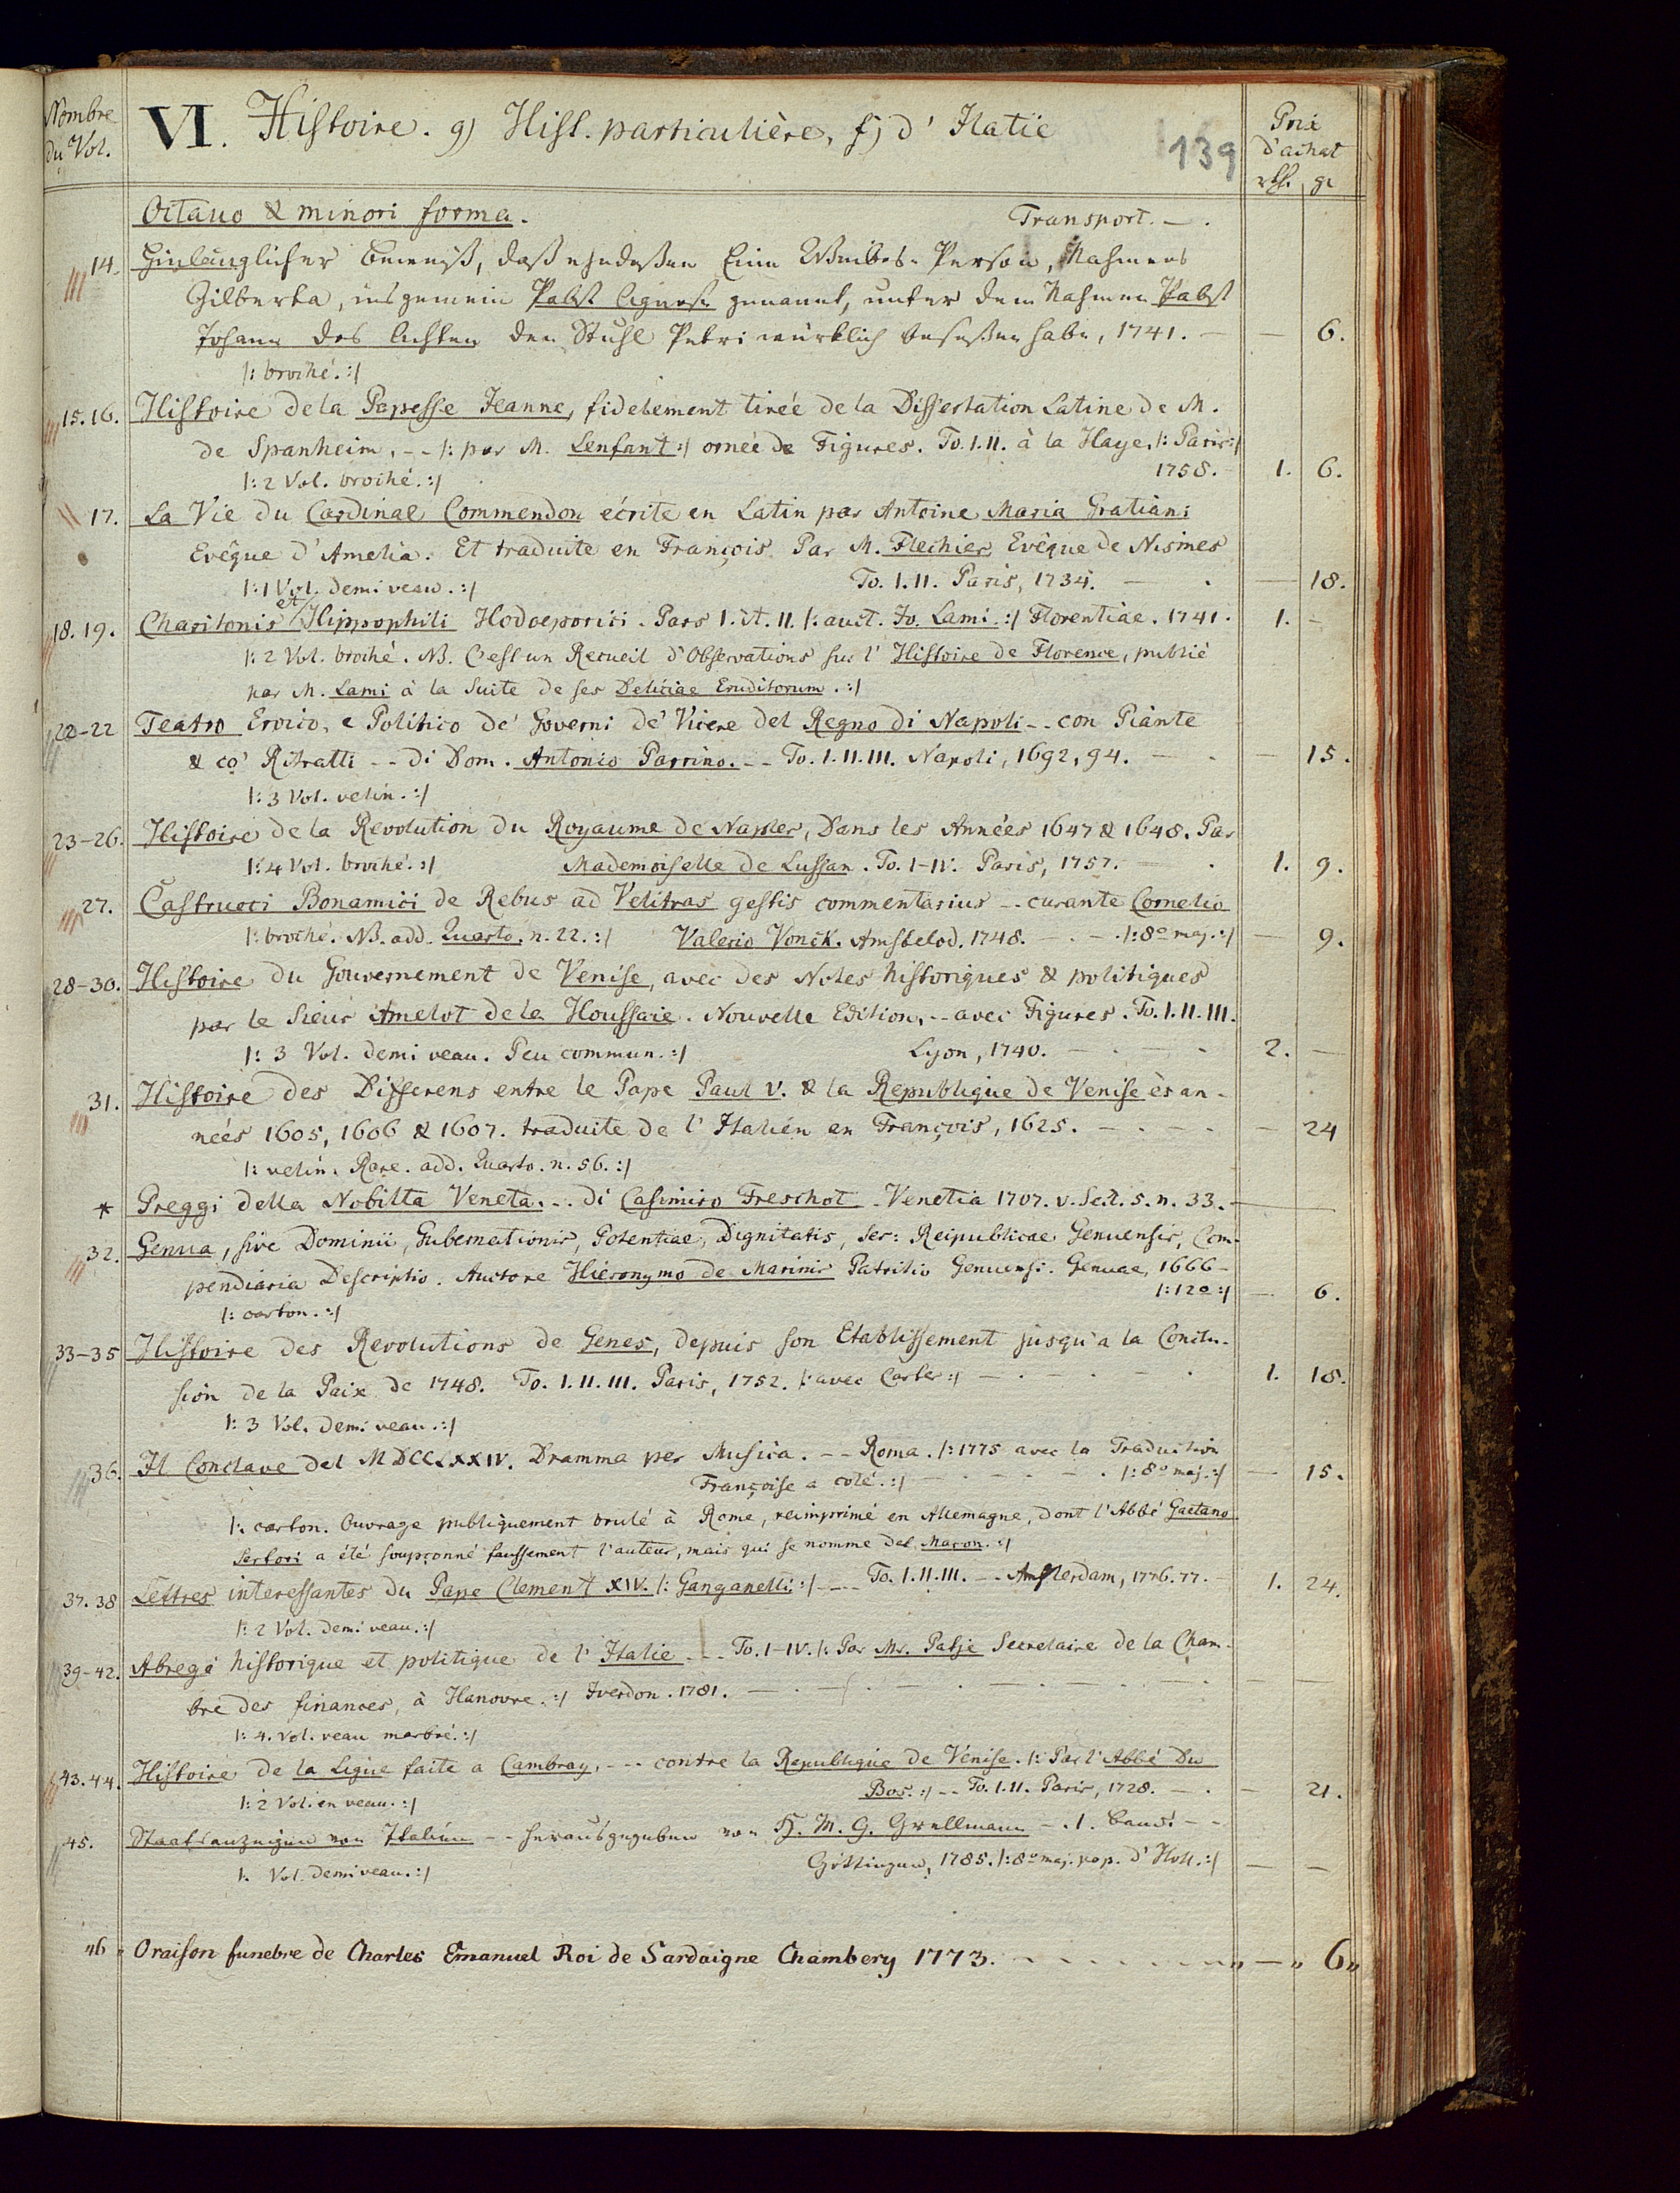 Nombre
du Vol.
VI. Histoire. g) Hist. particulière, f) d'Italie
139
Prix
d'achat
rth. gr
Octavo & minori forma.
Transport. — .
14. Hinlänglicher Beweiß, daß ehedeßen Eine Weibes-Person, Nahmens
Gilberta, insgemein Pabst Agnese genannt, unter dem Nahmen Pabst
Johann des Achten den Stuhl Petri würklich beseßen habe, 1741. — — 6.
|: broché. :|
15.16. Histoire de la Papesse Jeanne, fidelement tirée de la Dissertation Latine de M.
de Spanheim, -- |: par M. Lenfant :| ornée de Figures. To. I.II. à la Haye, |: Paris :|
|: 2 Vol. broché. :| 1758. - 1. 6.
17. La Vie du Cardinal Commendon écrite en Latin par Antoine Maria Gratiani
Evêque d'Amelia. Et traduite en François Par M. Flechier Evêque de Nismes
|: 1 Vol. demi veau. :| To. I.II. Paris, 1734. — . — 18.
18.19. Charitonis et Hippophili Hodoeporici. Pars I. et. II. |: auct. Jo. Lami. :| Florentiae. 1741. 1. -
|: 2 Vol. broché. NB. C'est un Recueil d'Observations sur l'Histoire de Florence, publié
par M. Lami à la Suite de ses Deliciae Eruditorum. :|
22-22 Teatro Eroico, e Politico de' Governi de' Vicere del Regno di Napoli -- con Piante
& co' Ritratti -- di Dom. Antonio Parrino. -- To. I.II.III. Napoli, 1692, 94. — . — 15.
|: 3 Vol. velin. :|
23-26. Histoire de la Revolution du Royaume de Naples, Dans les Années 1647 & 1648. Par
|: 4 Vol. broché. :| Mademoiselle de Lussan. To. I-IV. Paris, 1757. — . 1. 9.
27. Castrucci Bonamici de Rebus ad Velitras gestis commentarius -- curante Cornelio
|: broché. NB. add. Quarto. n. 22. :| Valerio Vonck. Amstelod. 1748. — . — . |: 8º maj. :| — 9.
28-30. Histoire du Gouvernement de Venise, avec des Notes historiques & politiques
par le Sieur Amelot de la Houssaie. Nouvelle Edition, -- avec Figures. To. I.II.III.
|: 3 Vol. demi veau. Peu commun. :| Lyon, 1740. — . — - 2. —
31. Histoire des Differens entre le Pape Paul V. & la Republique de Venise ès an-
nées 1605, 1606 & 1607. traduite de l'Italien en François, 1625. — . — . — . — 24
|: velin. Rare. add. Quarto. n. 56. :|
* Preggi della Nobilta Veneta. -- di Casimiro Freschot. Venetia 1707. v. Sect. 5. n. 33. —
32. Genua, sive Dominii, Gubernationis, Potentiae, Dignitatis, Ser: Reipublicae Genuensis, Com-
pendiaria Descriptio. Auctore Hieronymo de Marinis Patritio Genuensi. Genuae, 1666 -
|: carton. :| |: 12º :| — 6.
33-35 Histoire des Revolutions de Genes, depuis son Etablissement jusqu'a la Conclu-
sion de la Paix de 1748. To. I.II.III. Paris, 1752. |: avec Cartes :| — . — . — . 1. 18.
|: 3 Vol. demi veau. :|
36. Il Conclave del MDCCLXXIV. Dramma per Musica. -- Roma. |: 1775 avec la Traduction
Françoise a coté. :| — . — . — . |: 8º maj. :| — 15.
|: carton. Ouvrage publiquement brulé à Rome, reimprimé en Allemagne, dont l'Abbé Gaetano
Sertori a été soupçonné faussement l'auteur, mais qui se nomme del Maçon. :|
37.38 Lettres interessantes du Pape Clement XIV. |: Ganganelli :| ---- To. I.II.III. -- Amsterdam, 1776.77. - 1. 24.
|: 2 Vol. demi veau. :|
39-42. Abregé historique et politique de l'Italie --- To. I-IV. |: Par Mr. Patje Secretaire de la Cham-
bre des finances, à Hanovre. :| Iverdon. 1781. — . — . — . — . — — —
|: 4. Vol. veau marbré. :|
43.44. Histoire de la Ligue faite a Cambray, --- contre la Republique de Venise. |: Par l'Abbé Du
|: 2 Vol. en veau. :| Bos. :| -- To. I.II. Paris, 1728. — . — 21.
45. Staatsanzeigen von Italien -- herausgegeben von H. M. G. Grellmann -. 1. Band. --
|: Vol. demi veau. :| Göttingen, 1785. |: 8º maj. pap. d'Holl. :| — —
46 „ Oraison funebre de Charles Emanuel Roi de Sardaigne Chambery 1773. . . . . . . „ — „ 6 „